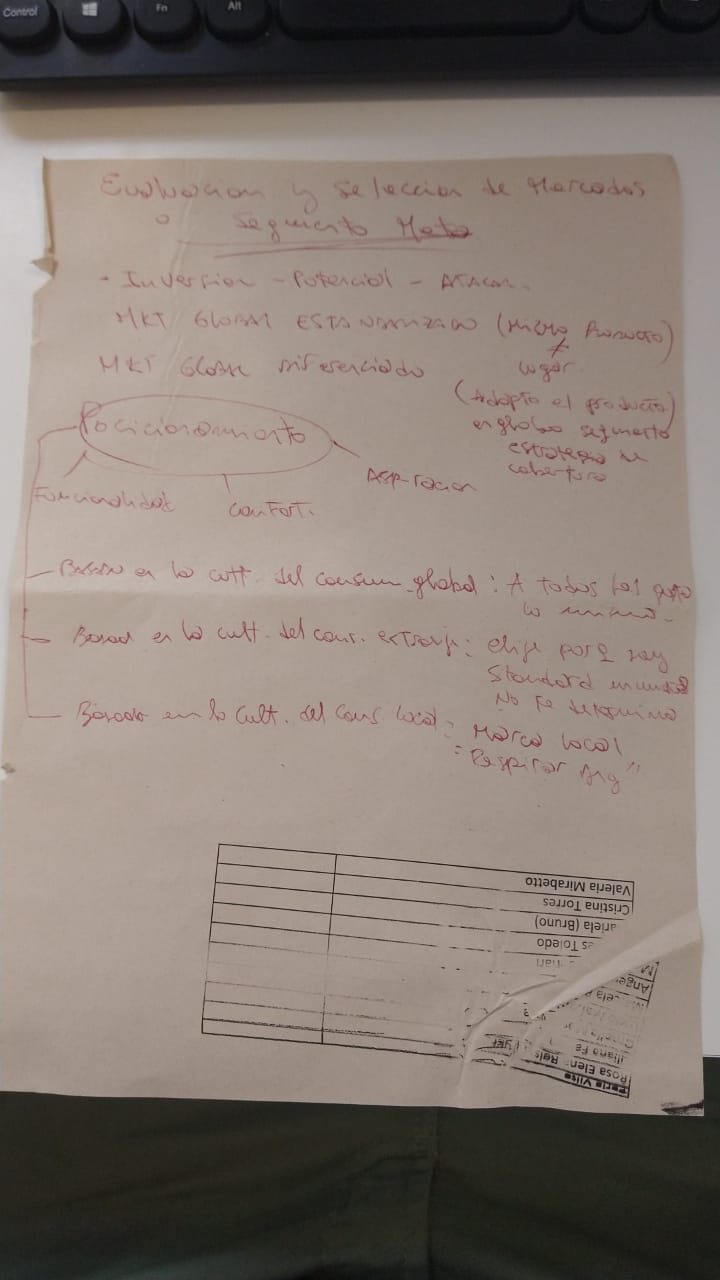 Control
Fn
Alt
Evaluacion y seleccion de Mercados
o segmento Meta
- Inversion - Potencial - ATACAR.
MKT GLOBAL ESTANDARIZADO (Mismo Producto)
≠ lugar
MKT GLOBAL Diferenciado
(Adapto el producto)
engloba segmento
estrategia de
cobertura
Posicionamiento
Funcionalidad
Confort.
Aspiracion
Basado en la cult. del consum. global : A todos les gusta
lo mismo.
Basad en la cult. del cons. extranj : elije porq hay
Standard mundial
No se
Basado en la Cult. del Cons local : Marca local
"Respirar Arg"
Valeria Mirabetto
Cristina Torres
ariela (Bruno)
es Toledo
Ange
iliana Fa
Rosa Elena Reis